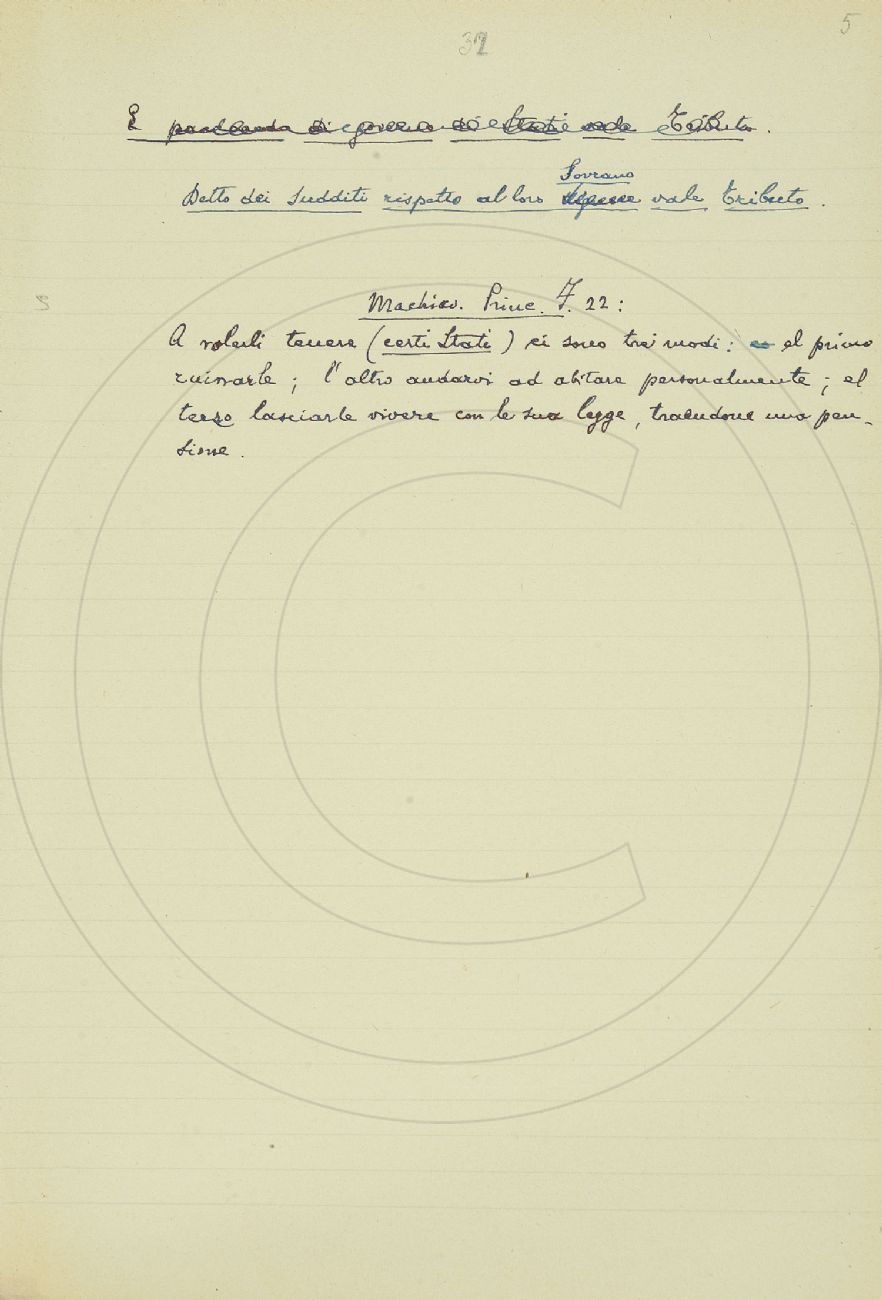 5
32
E parlando di governo di Stati vale Tributo.
Sovrano
Detto dei Sudditi rispetto al loro vale tributo.
S
Machiav. Princ. F. 22:
A volerli tenere (certi Stati) ci sono tre modi: el primo
ruinarle; l'altro andarvi ad abitare personalmente; el
terzo lasciarle vivere con le sua legge, traendone una pen-
sione.